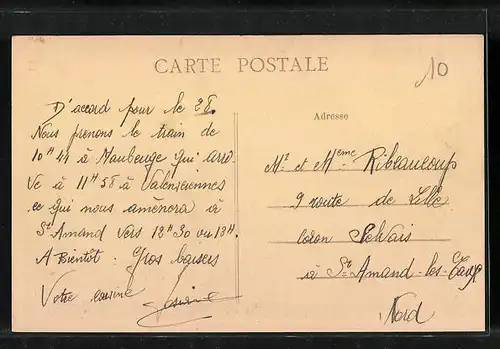 CARTE POSTALE
10
D'accord pour le 28.
Nous prenons le train de
10H44 à Maubeuge qui arri
ve à 11H58 à Valenciennes
ce qui nous amènera à
St Amand vers 12H30 ou 13H.
A Bientôt. Gros baisers
Votre cousine
Adresse
Mr et Meme Ribeaucoup
9 route de Lille
coron
à St Amand-les-Eaux
Nord